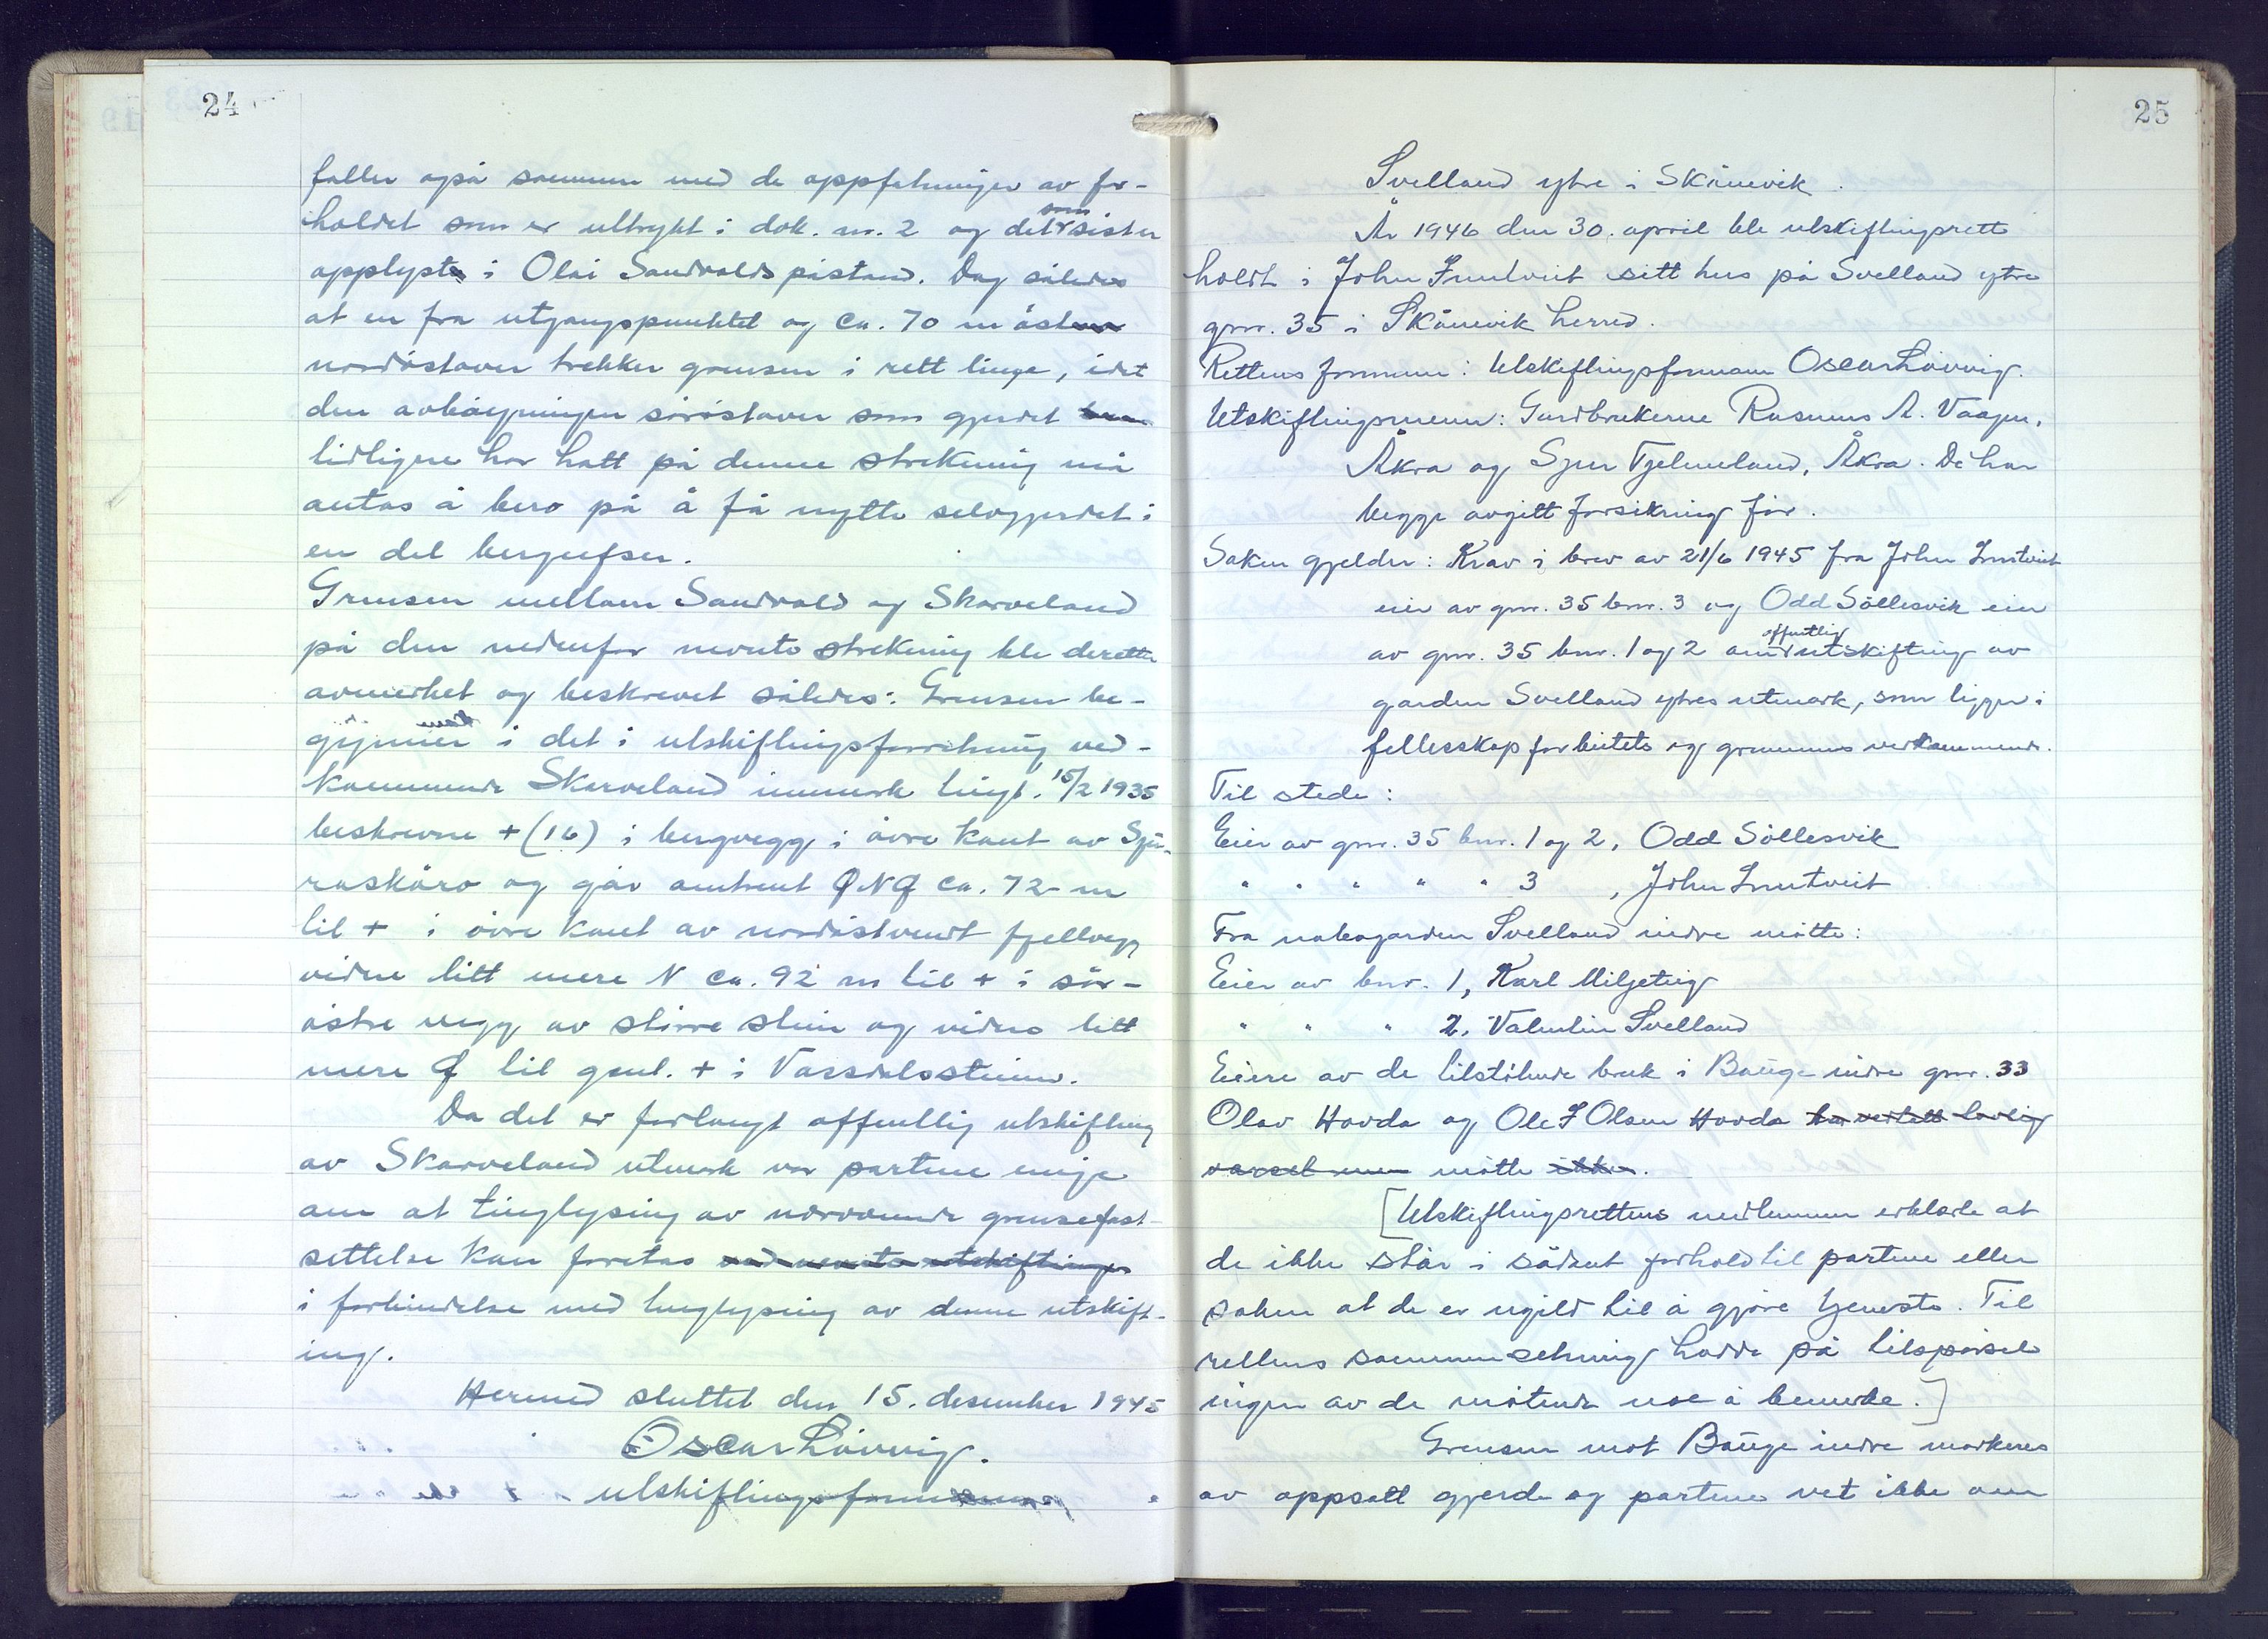 24
faller også sammen med de oppfatninger av for-
holdet som er uttrykt i dok. nr. 2 og det som sistes
opplyst i Olai Sandvolds påstand. Dog således
at en fra utgangspunktet og ca. 70 m
nordöstover trekker grensen i rett linje, idet
den avböyningen söröstover som gjerdet
tidligere har hatt på denne strekning må
antas å bero på å få nytte selvgjerdet i
en del bergufser.
Grensen mellom Sandvold og Skarveland
på den nedenfor nevnte strekning ble deretter
avmerket og beskrevet således: Grensen be-
gynner i det i utskiftingsforretning ved-
kommende Skarveland innmark tingl. 15/2 1935
beskrevne + (16) i bergvegg i övre kant av
raskåro og går omtrent ØNØ ca. 72 m
til + i övre kant av nordöstvendt fjellvegg
videre litt mere N ca. 92 m til + i sör-
östre vegg av större stein og videre litt
mere Ø til gml. + i Vassdalssteinen.
Da det er forlangt offentlig utskifting
av Skarveland utmark var partene enige
om at tinglysing av nærværende grensefast-
settelse kan foretas ved nevnte utskiftinger
i forbindelse med tinglysing av denne utskift-
ing.
Hermed sluttet den 15. desember 1945
Oscar Lövvig.
utskiftingsformann
25
Svelland ytre i Skånevik.
År 1946 den 30. april ble utskiftingsrett
holdt i John Frutveit sitt hus på Svelland ytre
gnr. 35 i Skånevik herred.
Rettens formann: Utskiftingsformann Oscar Lövvig.
Utskiftingsmenn: Gardbrukerne Rasmus A. Vaagen,
Åkra og Sjur Fjelmeland, Åkra. De har
begge avgitt forsikring för.
Saken gjelder: Krav i brev av 21/6 1945 fra John
eier av gnr. 35 bnr. 3 og Odd Söllesvik eier
av gnr. 35 bnr. 1 og 2 om offentlig utskifting av
garden Svelland ytres utmark, som ligger i
fellesskap for beitets og grunnens vedkommende.
Til stede:
Eier av gnr. 35 bnr. 1 og 2, Odd Söllesvik
" " " " " 3 , John
Fra nabogarden Svelland indre mötte:
Eier av bnr. 1, Karl Miljeteig
" " " 2. Valentin Svelland
Eiere av de tilstötende bruk i Bauge indre gnr. 33
Olav Hovda og Ole J Olsen Hovda har vedtatt lovlig
varsel men mötte ikke.
[Utskiftingsrettens medlemmer erklærte at
de ikke står i sådant forhold til partene eller
saken at de er ugild til å gjöre tjeneste. Til
rettens sammensetning hadde på tilspörsel
ingen av de mötende noe å bemerke.]
Grensen mot Bauge indre markeres
av oppsatt gjerde og partene vet ikke om